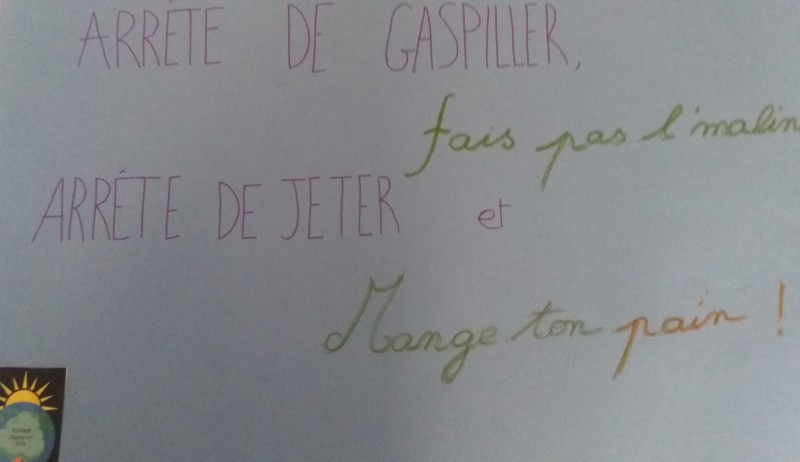 ARRÊTE DE GASPILLER,
fais pas l'malin
ARRÊTE DE JETER et
Mange ton pain !